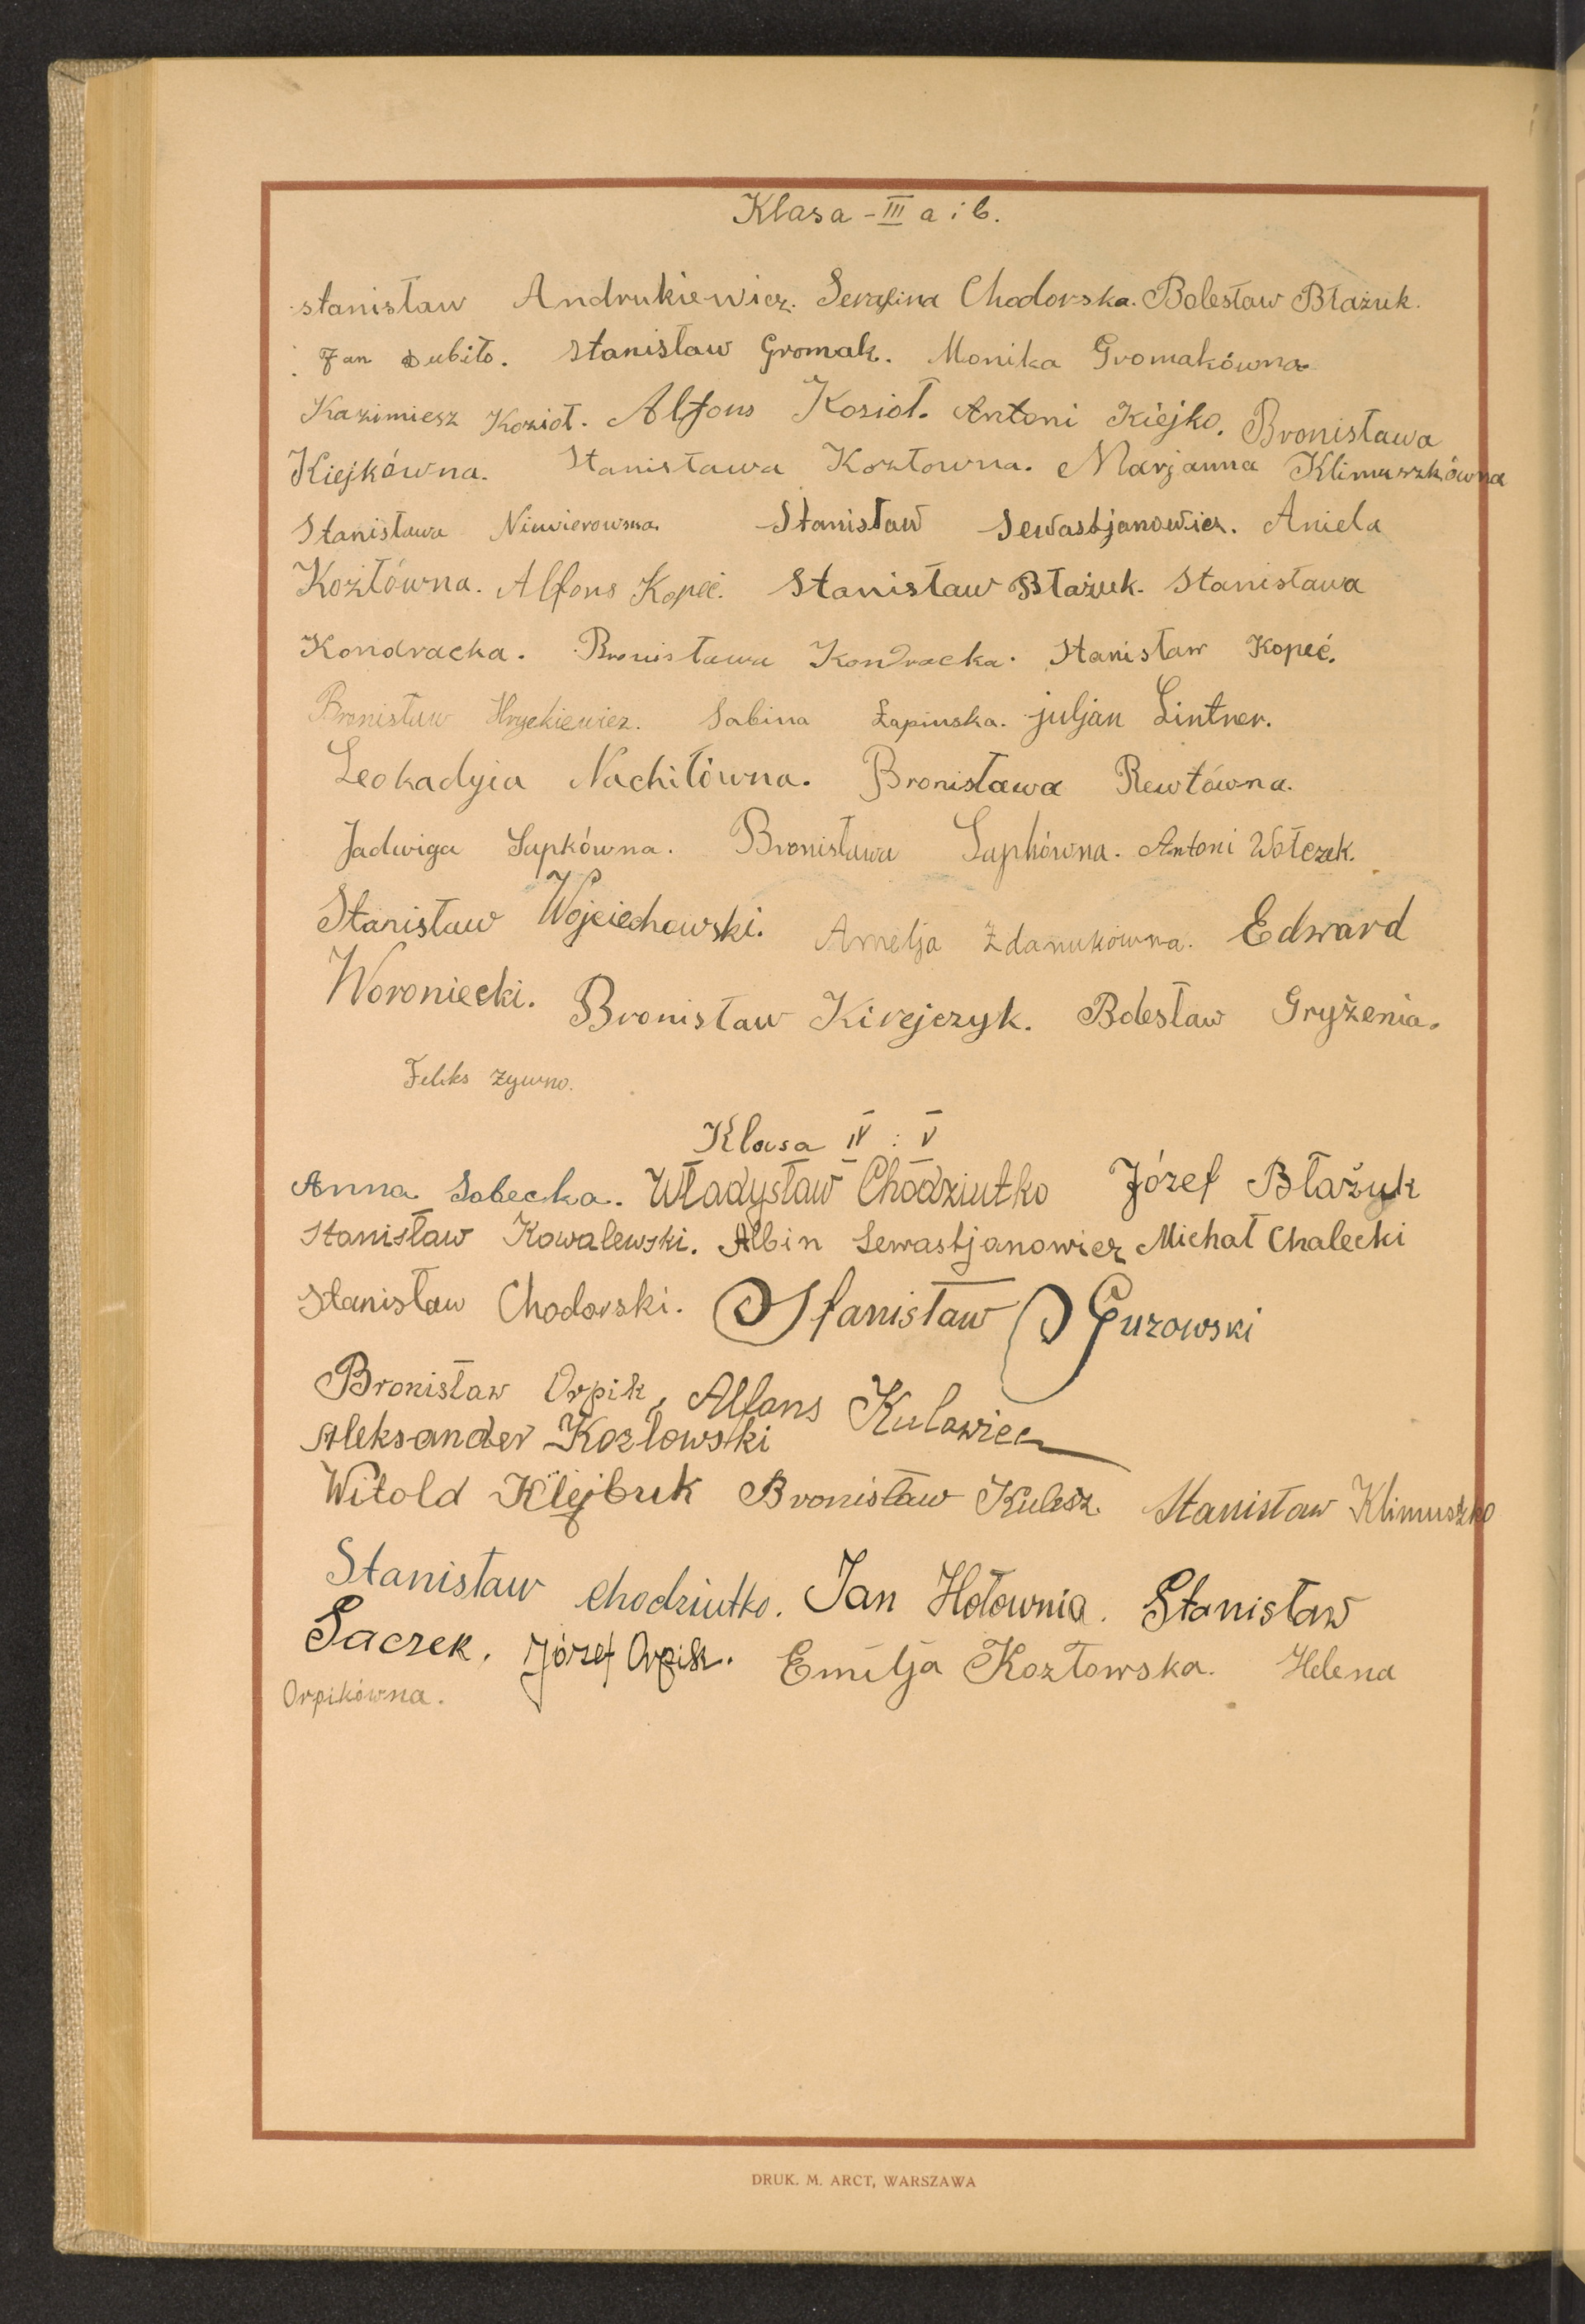 Klasa - III a i b.
Stanisław Andrukiewicz. Serafina Chodorska. Bolesław Błażuk.
Jan Dubiło. Stanisław Gromak. Monika Gromakówna
Kazimiesz Kozioł. Alfons Kozioł. Antoni Kiejko. Bronisława
Kiejkówna. Stanisława Kozłowna. Marjanna Klimuszkówna
Stanisława Niewierowska. Stanisław Sewastjanowicz. Aniela
Kozłówna. Alfons Kopeć. Stanisław Błażuk. Stanisława
Kondracka. Bronisława Kondracka. Stanisław Kopeć.
Bronisław Hryckiewicz. Sabina Łapinska. juljan Lintner.
Leokadyia Nachiłówna. Bronisława Rewtówna.
Jadwiga Sapkówna. Bronisława Sapkówna. Antoni Wołczek.
Stanisław Wojciechowski. Amelja Zdanukówna. Edward
Woroniecki. Bronisław Kirejczyk. Bolesław Gryżenia.
Feliks Żywno.
Klasa IV i V
Anna Sobecka. Władysław Chodziutko Józef Błażuk
Stanisław Kowalewski. Albin Sewastjanowicz Michał Chalecki
Stanisław Chodorski. Stanisław Gurowski
Bronisław Orpik, Alfons Kulawiec
Aleksander Kozłowski
Witold Klejbuk Bronisław Kulesz. Stanisław Klimuszko
Stanisław Chodziutko. Jan Hołownia. Stanisław
Saczek. Józef Orpik. Emilja Kozłowska. Helena
Orpikówna.
DRUK. M. ARCT, WARSZAWA